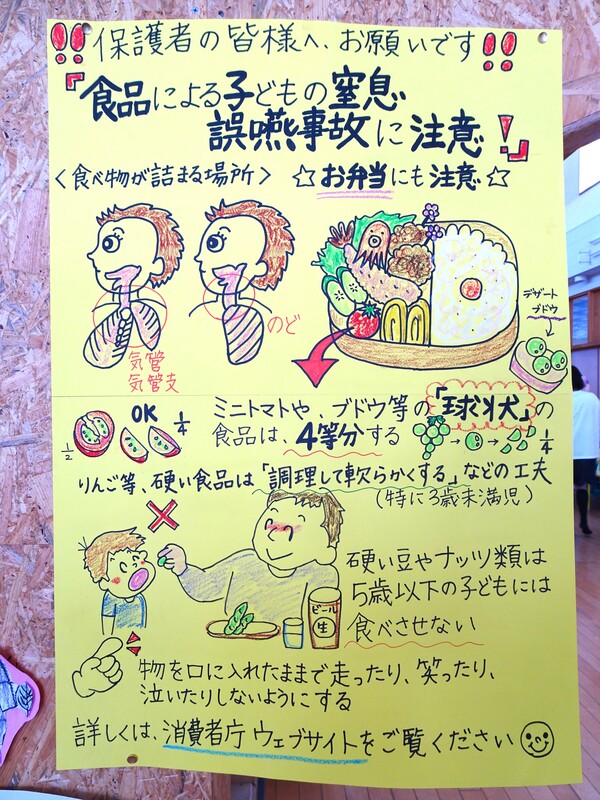 !! 保護者の皆様へ、お願いです !!
『食品による子どもの窒息
誤嚥事故に注意!』
<食べ物が詰まる場所>
☆お弁当にも注意☆
気管
気管支
のど
デザート
ブドウ
OK
1/2
1/4
ミニトマトや、ブドウ等の「球状」の
食品は、4等分する
1/4
りんご等、硬い食品は「調理して軟らかくする」などの工夫
(特に3歳未満児)
硬い豆やナッツ類は
5歳以下の子どもには
食べさせない
ビール
生
物を口に入れたままで走ったり、笑ったり、
泣いたりしないようにする
詳しくは、消費者庁ウェブサイトをご覧ください